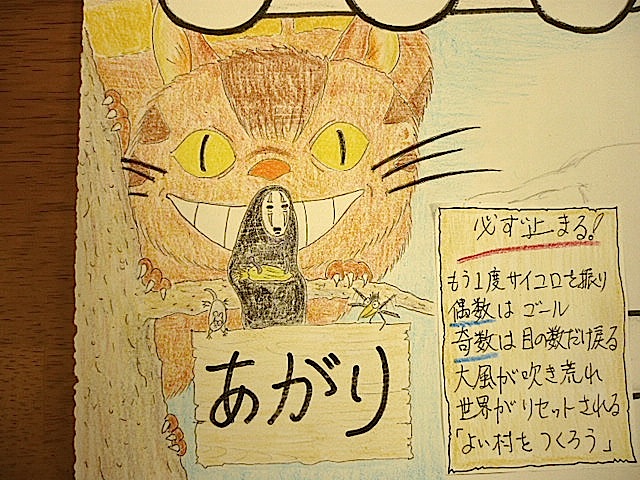 必ず止まる!
もう1度サイコロを振り
偶数は ゴール
奇数は 目の数だけ戻る
大風が吹き荒れ
世界がリセットされる
「よい村をつくろう」
あがり